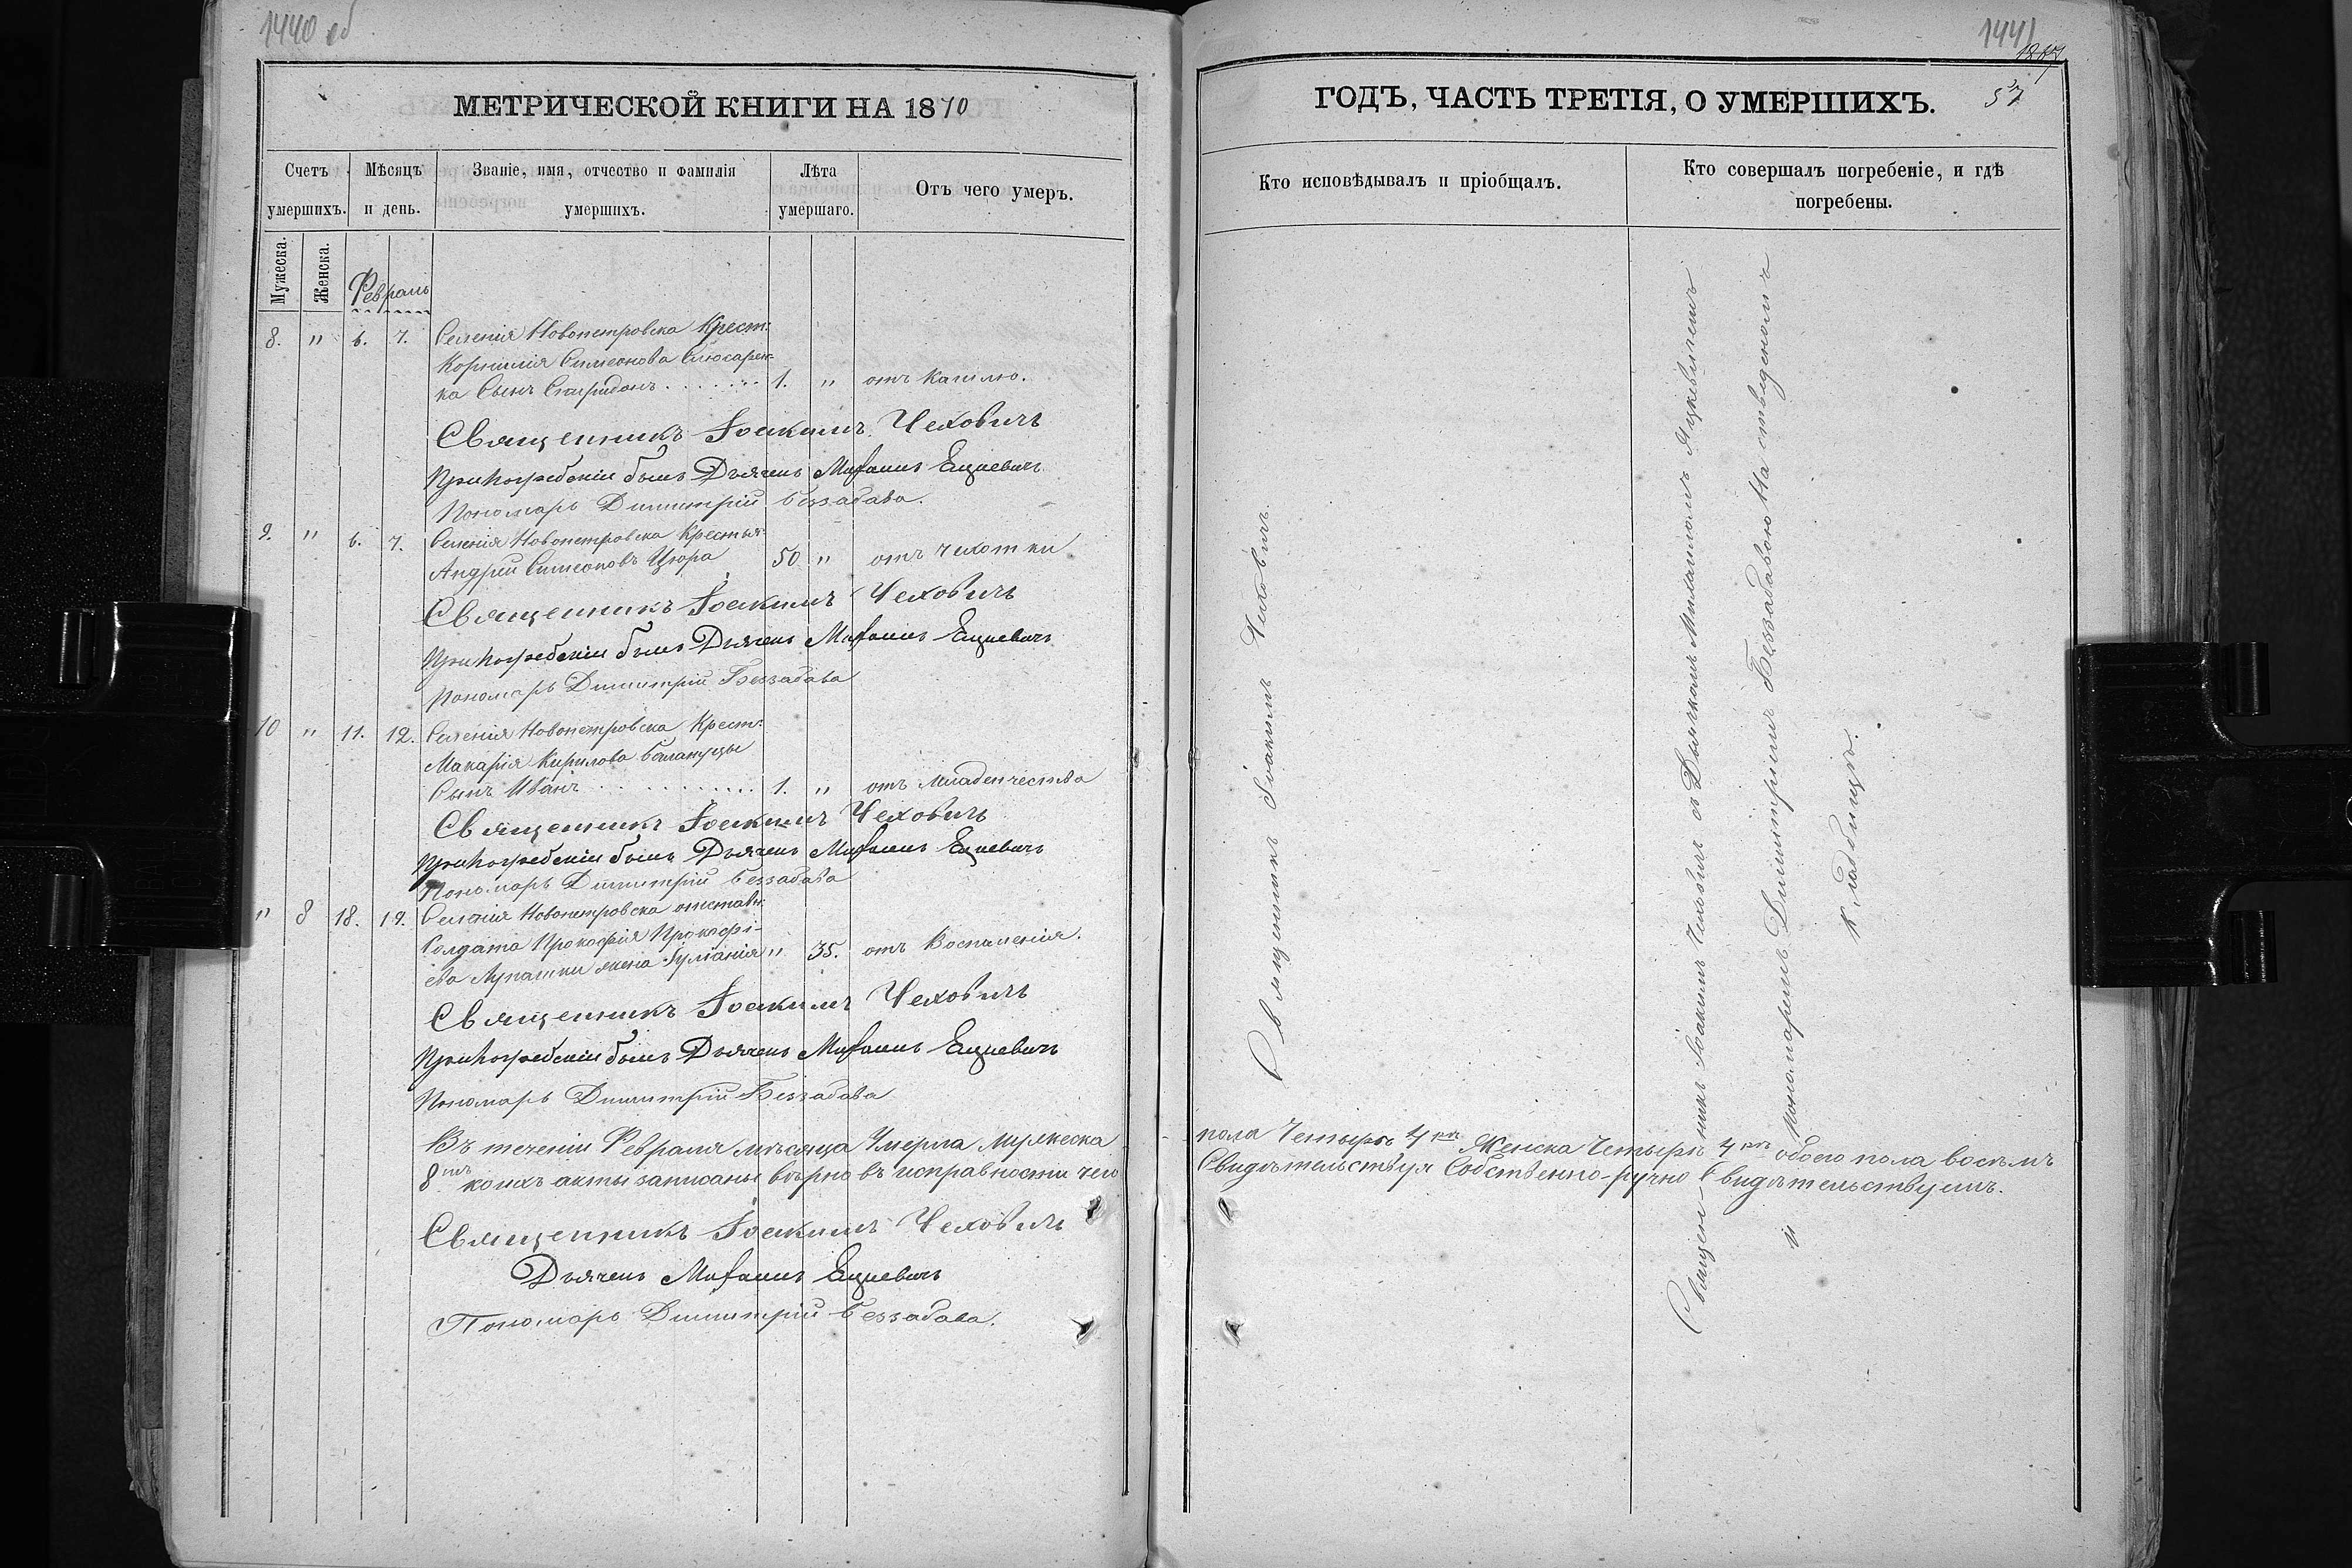 1440 об
МЕТРИЧЕСКОЙ КНИГИ НА 1870
Счетъ умершихъ.
Мѣсяцъ и день.
Званіе, имя, отчество и фамилія умершихъ.
Лѣта умершаго.
Отъ чего умеръ.
Мужеска.
Женска.
Февраль
8. " 6. 7. Селенія Новопетровска Крест:
Корнилія Симеонова Слюсарен-
ка Сынъ Спиридонъ . . . . . . 1. " отъ Кашлю.
Священникъ Іоакимъ Чеховичъ
При погребеніи былъ Дьячекъ Михаилъ Яцкевичъ
Пономарь Димитрій Беззабава.
9. " 6. 7. Селенія Новопетровска Крестья:
Андрей Симеоновъ Цюра 50 " отъ чехотки
Священникъ Іоакимъ Чеховичъ
При погребеніи былъ Дьячекъ Михаилъ Яцкевичъ
Пономарь Димитрій Беззабава
10 " 11. 12. Селенія Новопетровска Крест:
Макарія Кирилова Балануцы
Сынъ Иванъ . . . . . . . . . . 1. " отъ Младенчества
Священникъ Іоакимъ Чеховичъ
При погребеніи былъ Дьячекъ Михаилъ Яцкевичъ
Пономарь Димитрій Беззабава
" 8 18. 19. Селенія Новопетровска отставн:
Солдата Прокофія Прокофі-
ева Лупашки жена Іуліанія " 35. отъ Воспаленія.
Священникъ Іоакимъ Чеховичъ
При погребеніи былъ Дьячекъ Михаилъ Яцкевичъ
Пономарь Димитрій Беззабава
Въ теченіи Февраля мѣсяца Умерла мужеска
8мъ коихъ акты записаны вѣрно въ исправности чего
Священникъ Іоакимъ Чеховичъ
Дьячекъ Михаилъ Яцкевичъ
Пономарь Димитрій Беззабава.
1441
57
ГОДЪ, ЧАСТЬ ТРЕТІЯ, О УМЕРШИХЪ.
Кто исповѣдывалъ и пріобщалъ.
Кто совершалъ погребеніе, и гдѣ погребены.
Священникъ Іоакимъ Чеховичъ.
Священникъ Іоакимъ Чеховичъ съ Дьячкомъ Михаиломъ Яцкевичемъ
и пономаремъ Димитріемъ Беззабавою На отведеномъ
Кладбищѣ.
пола Четыре 4ре Женска Четыре 4ре обоего пола восѣмъ
Свидѣтельствуя Собственно-ручно Свидѣтельствуемъ.